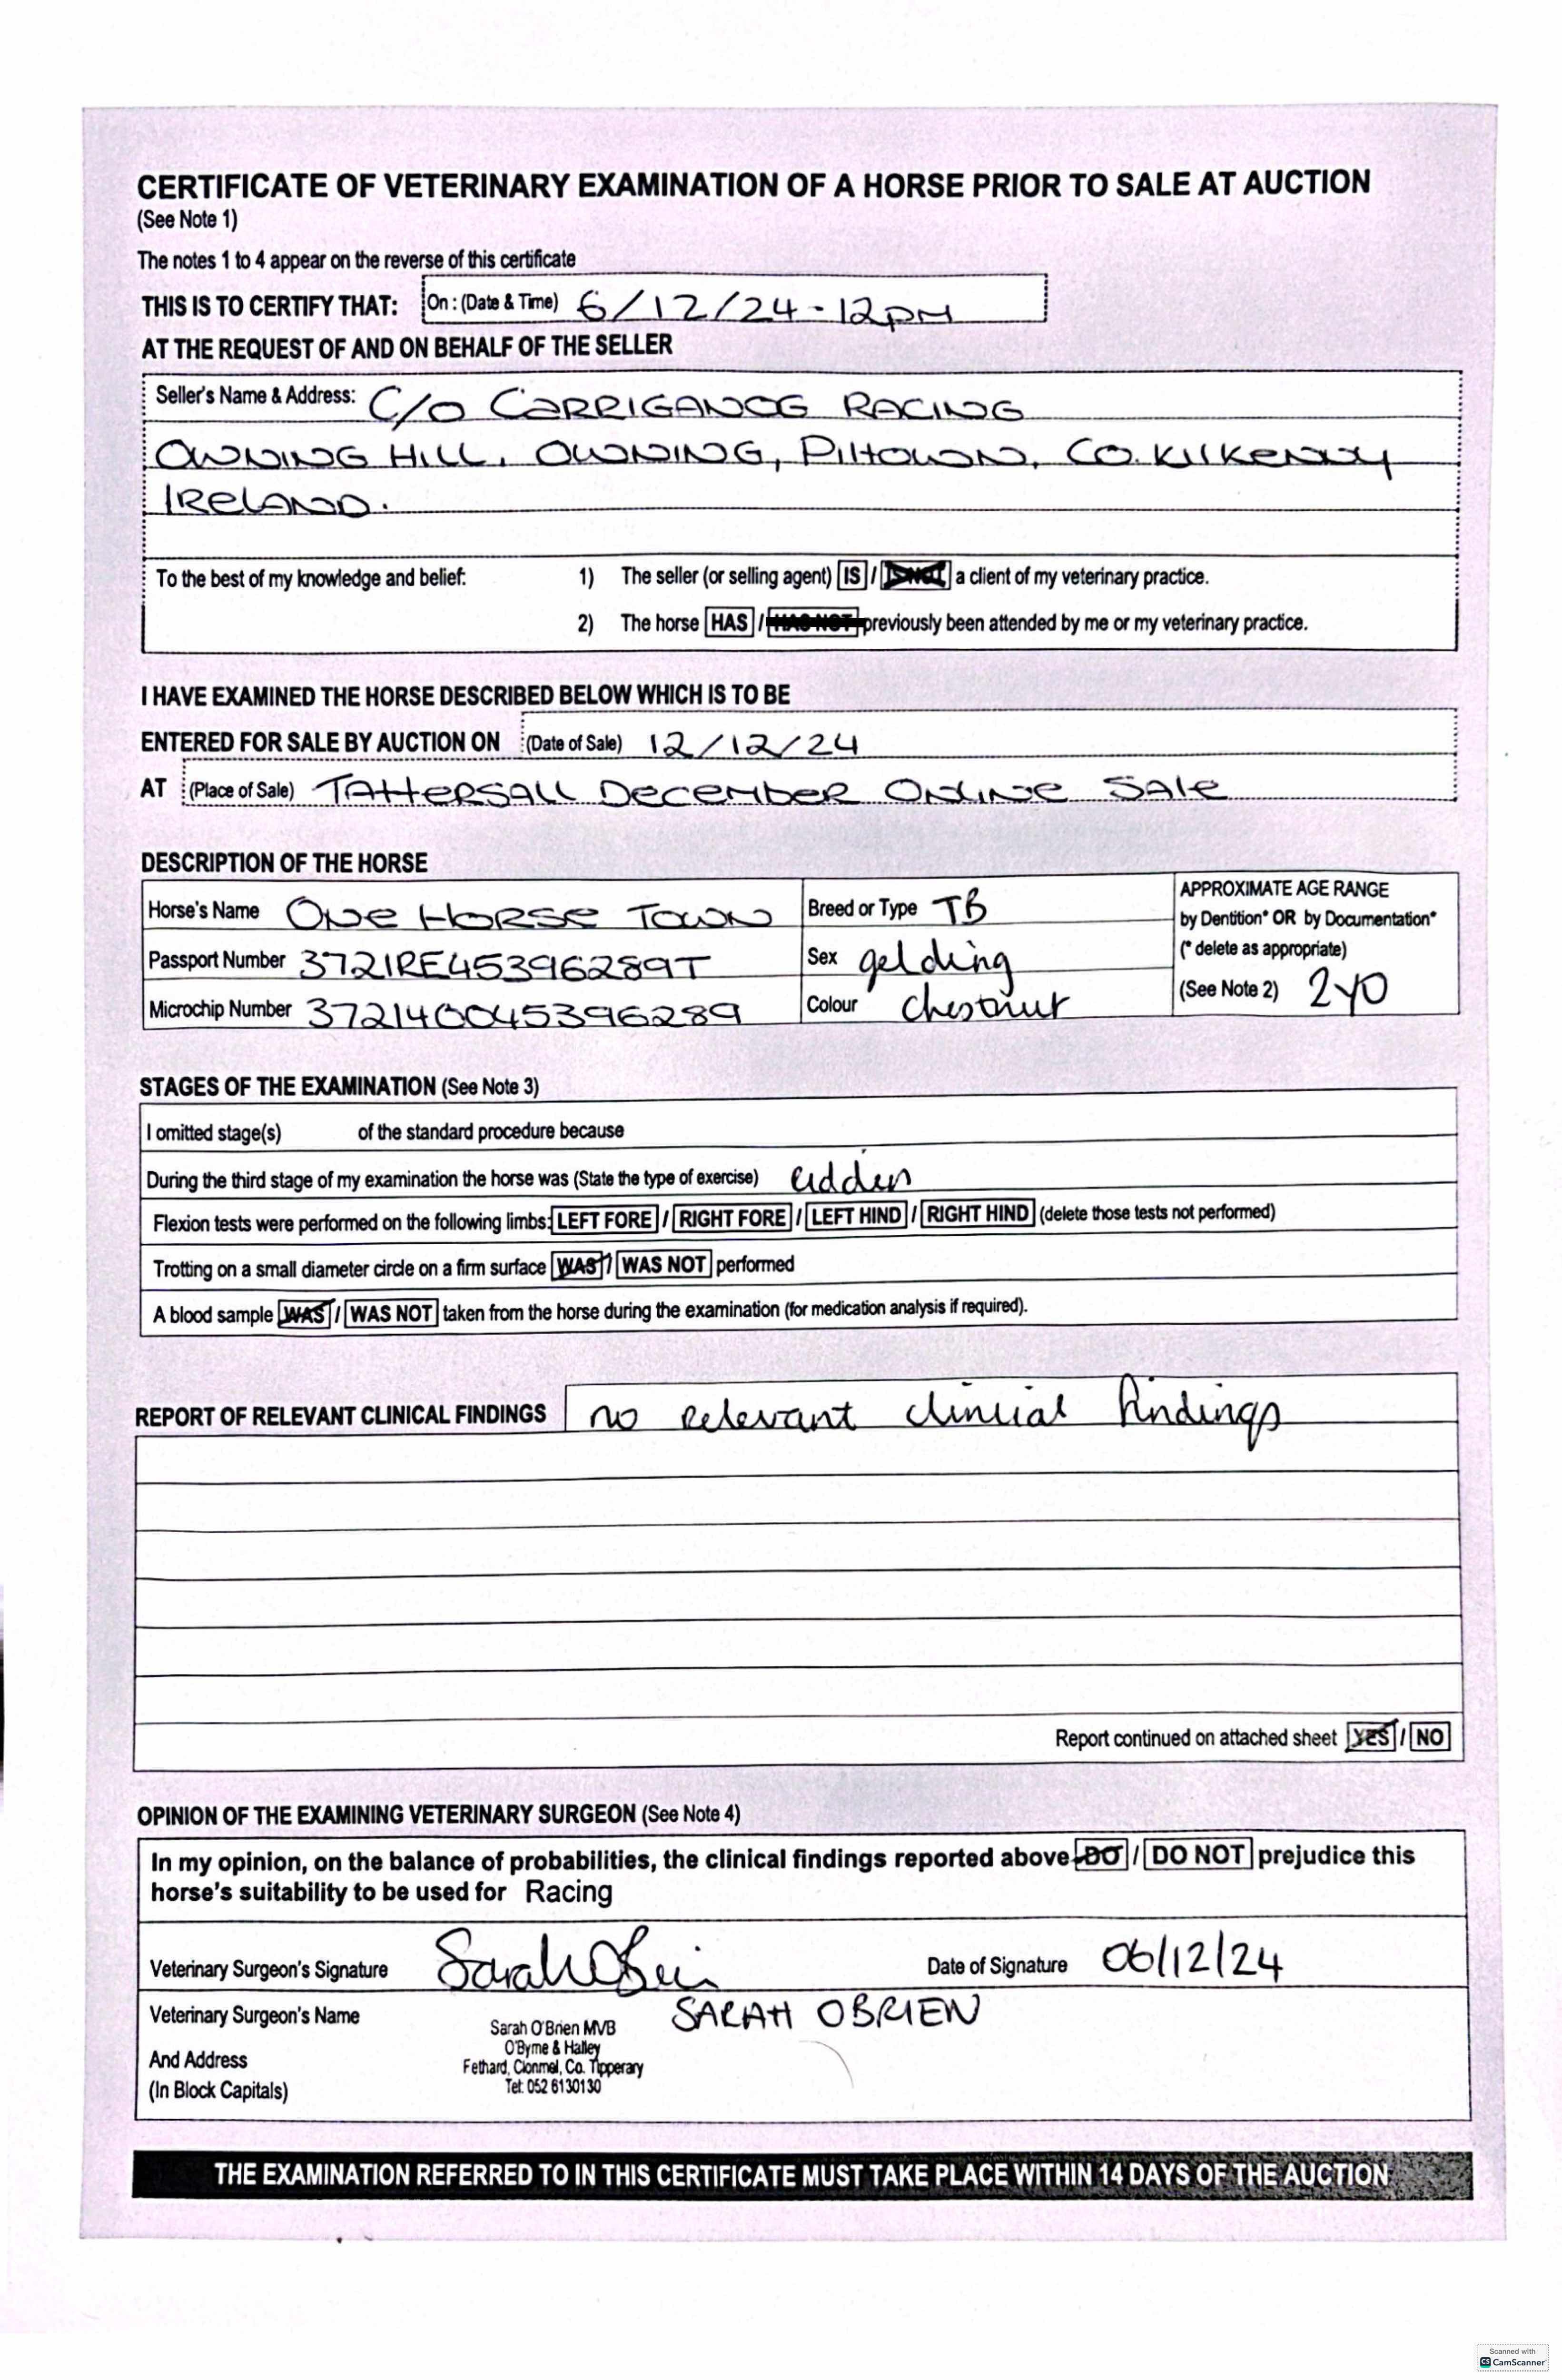 CERTIFICATE OF VETERINARY EXAMINATION OF A HORSE PRIOR TO SALE AT AUCTION
(See Note 1)
The notes 1 to 4 appear on the reverse of this certificate
THIS IS TO CERTIFY THAT: On : (Date & Time) 6/12/24 - 12pm
AT THE REQUEST OF AND ON BEHALF OF THE SELLER
Seller's Name & Address: C/O CARRIGANOG RACING
OWNING HILL, OWNING, PILTOWN, CO. KILKENNY
IRELAND.
To the best of my knowledge and belief: 1) The seller (or selling agent) IS / IS NOT a client of my veterinary practice.
2) The horse HAS / HAS NOT previously been attended by me or my veterinary practice.
I HAVE EXAMINED THE HORSE DESCRIBED BELOW WHICH IS TO BE
ENTERED FOR SALE BY AUCTION ON (Date of Sale) 12/12/24
AT (Place of Sale) TATTERSALL DECEMBER ONLINE SALE
DESCRIPTION OF THE HORSE
Horse's Name ONE HORSE TOWN Breed or Type TB APPROXIMATE AGE RANGE
by Dentition* OR by Documentation*
Passport Number 372IRE45396289T Sex gelding (* delete as appropriate)
Microchip Number 372140045396289 Colour chestnut (See Note 2) 2YO
STAGES OF THE EXAMINATION (See Note 3)
I omitted stage(s) of the standard procedure because
During the third stage of my examination the horse was (State the type of exercise) ridden
Flexion tests were performed on the following limbs: LEFT FORE / RIGHT FORE / LEFT HIND / RIGHT HIND (delete those tests not performed)
Trotting on a small diameter circle on a firm surface WAS / WAS NOT performed
A blood sample WAS / WAS NOT taken from the horse during the examination (for medication analysis if required).
REPORT OF RELEVANT CLINICAL FINDINGS no relevant clinical findings
Report continued on attached sheet YES / NO
OPINION OF THE EXAMINING VETERINARY SURGEON (See Note 4)
In my opinion, on the balance of probabilities, the clinical findings reported above DO / DO NOT prejudice this
horse's suitability to be used for Racing
Veterinary Surgeon's Signature Sarah O'Brien Date of Signature 06/12/24
Veterinary Surgeon's Name SARAH OBRIEN
Sarah O'Brien MVB
O'Byrne & Halley
And Address Fethard, Clonmel, Co. Tipperary
(In Block Capitals) Tel: 052 6130130
THE EXAMINATION REFERRED TO IN THIS CERTIFICATE MUST TAKE PLACE WITHIN 14 DAYS OF THE AUCTION
Scanned with
CS CamScanner